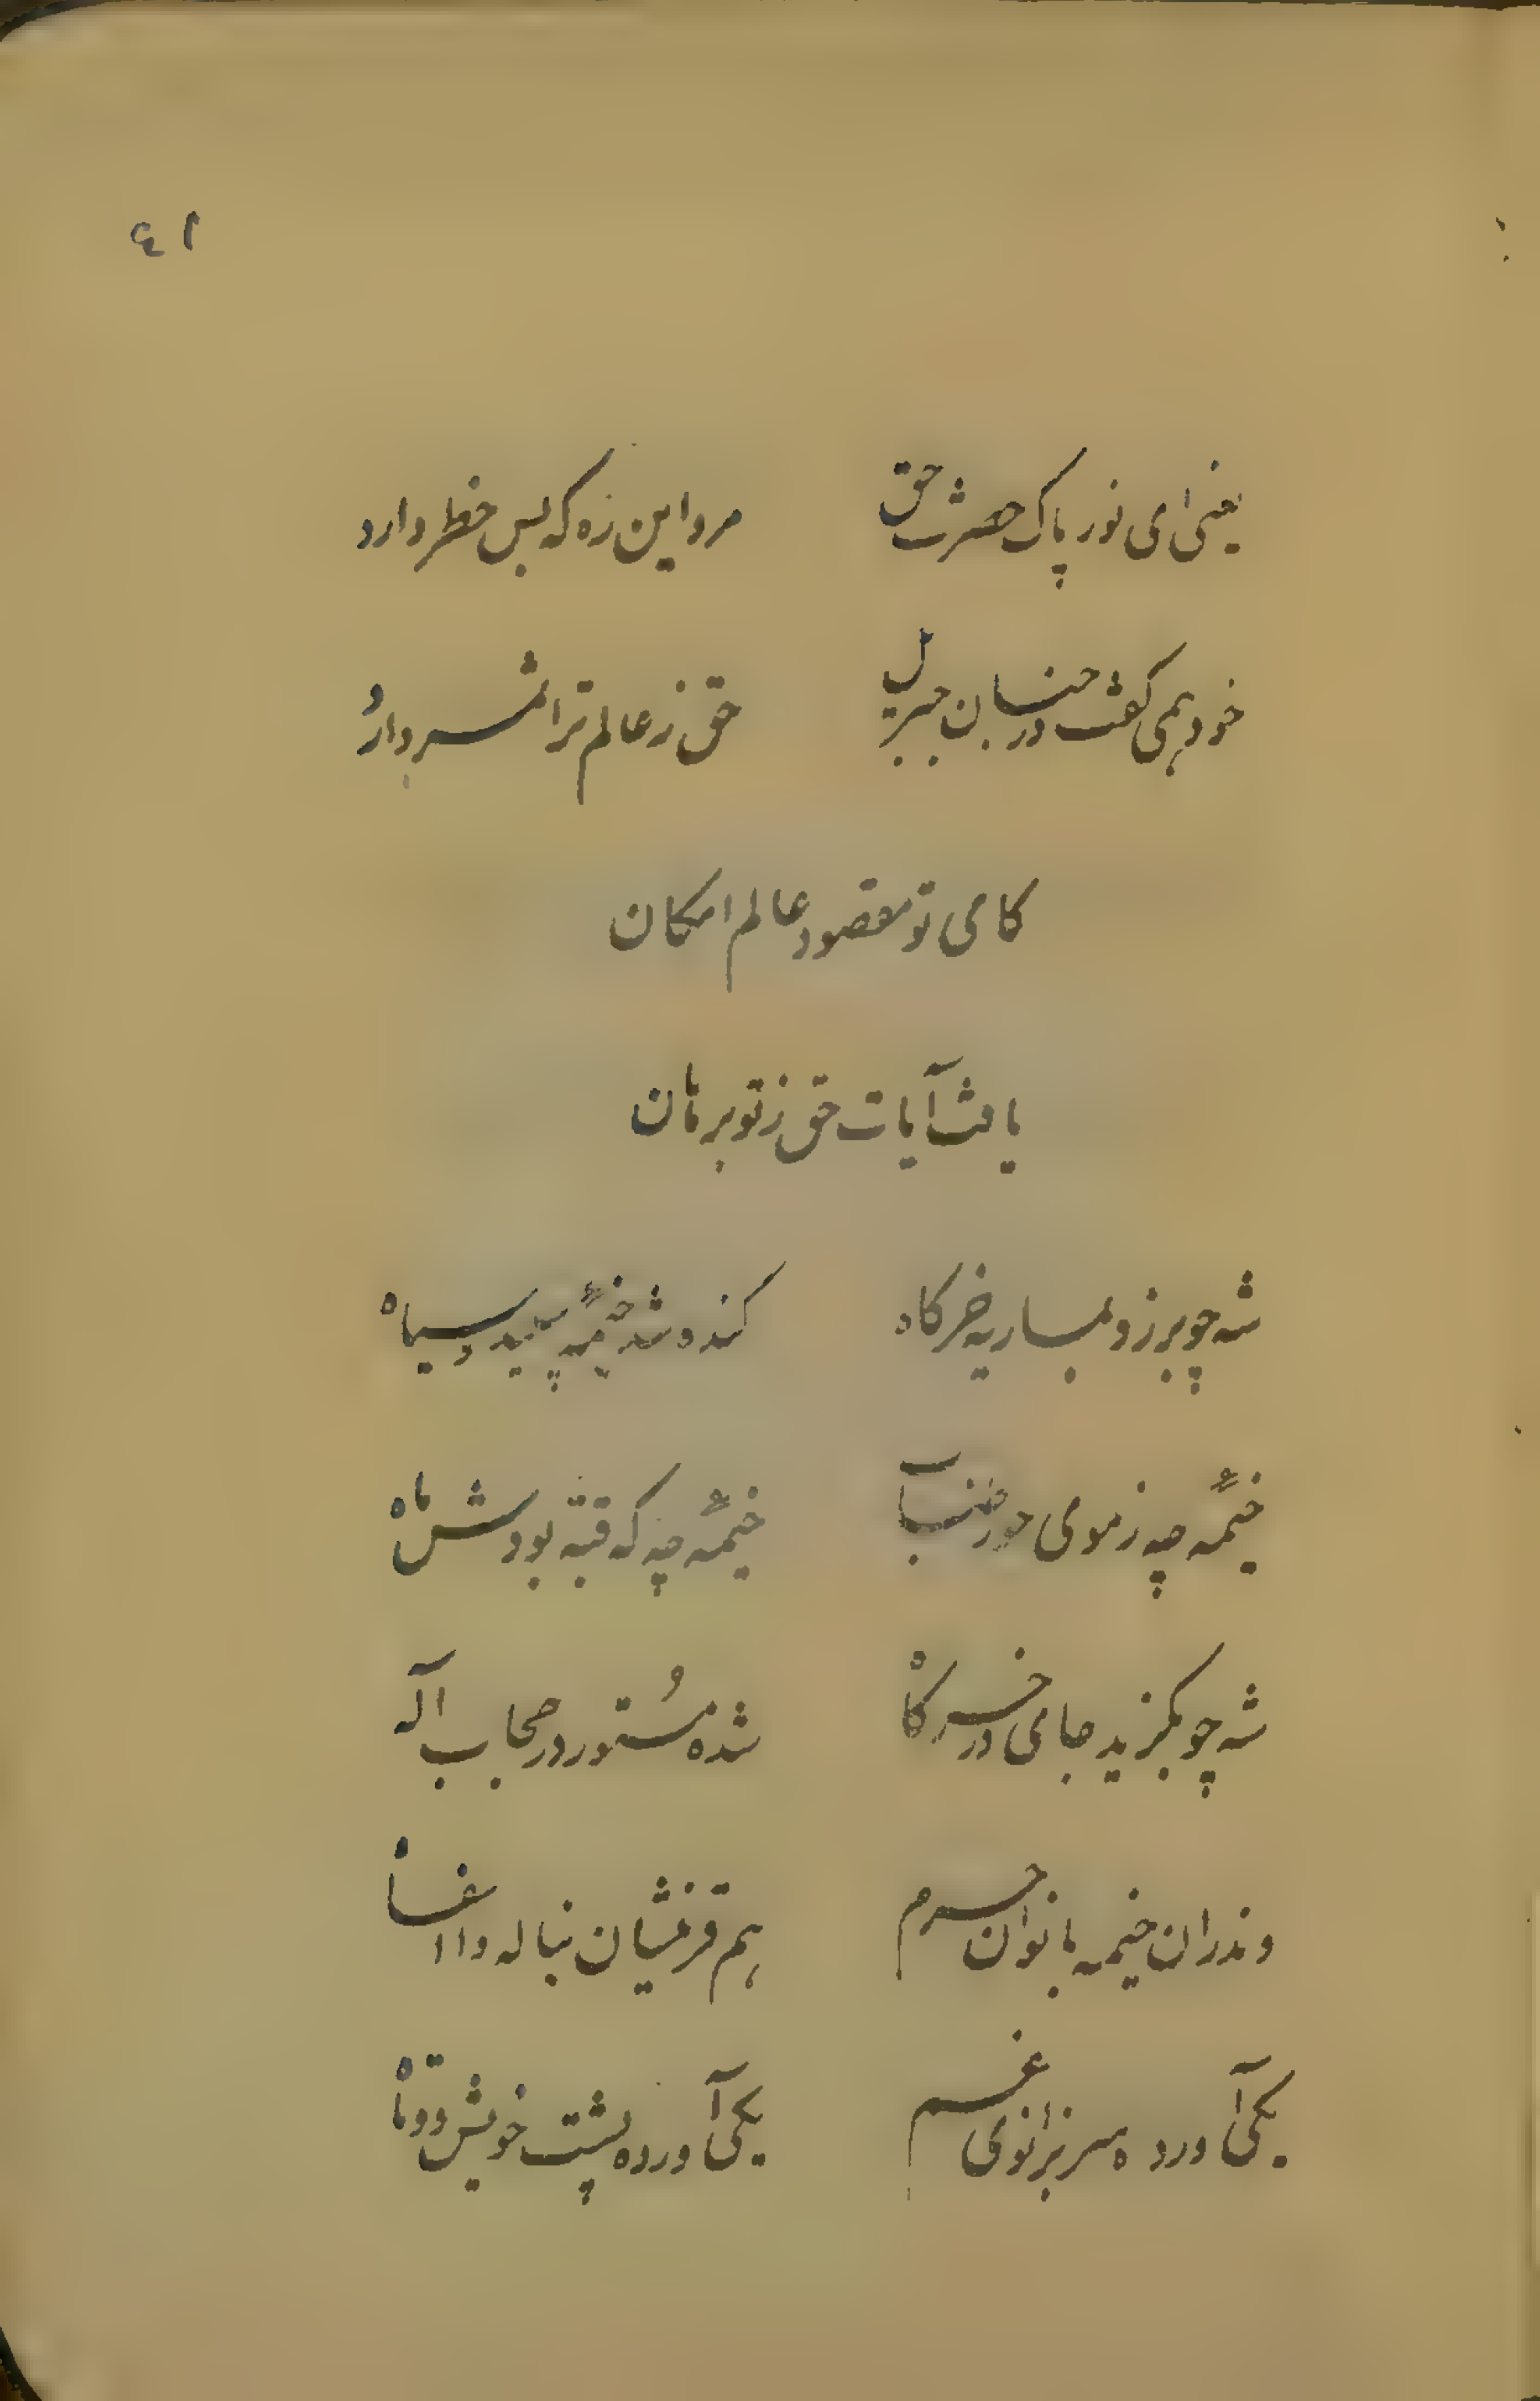 ۴۱
یعنی ای نور پاک حضرت حق مرو این ره که بس خطر دارد
خود همی گفت در جنان جبریل حق ز عالم ترا ثمر دارد
کای تو مقصود عالم امکان
یافت آیات حق ز تو برهان
شه چو برزد و بساریه خرگاه کنده شد خیمهٔ سپید و سیاه
خیمهٔ چه ز موی حور طناب خیمهٔ چه که قبه بودش ماه
شه چو بگزید جای در خرگاه شده مستور در حجاب اله
وندران خیمه بانوان حرم هم قرینشان بناله وا اسفاه
یکی آورده سر بزانوی غم یکی آورده پشت خویش دوتاه